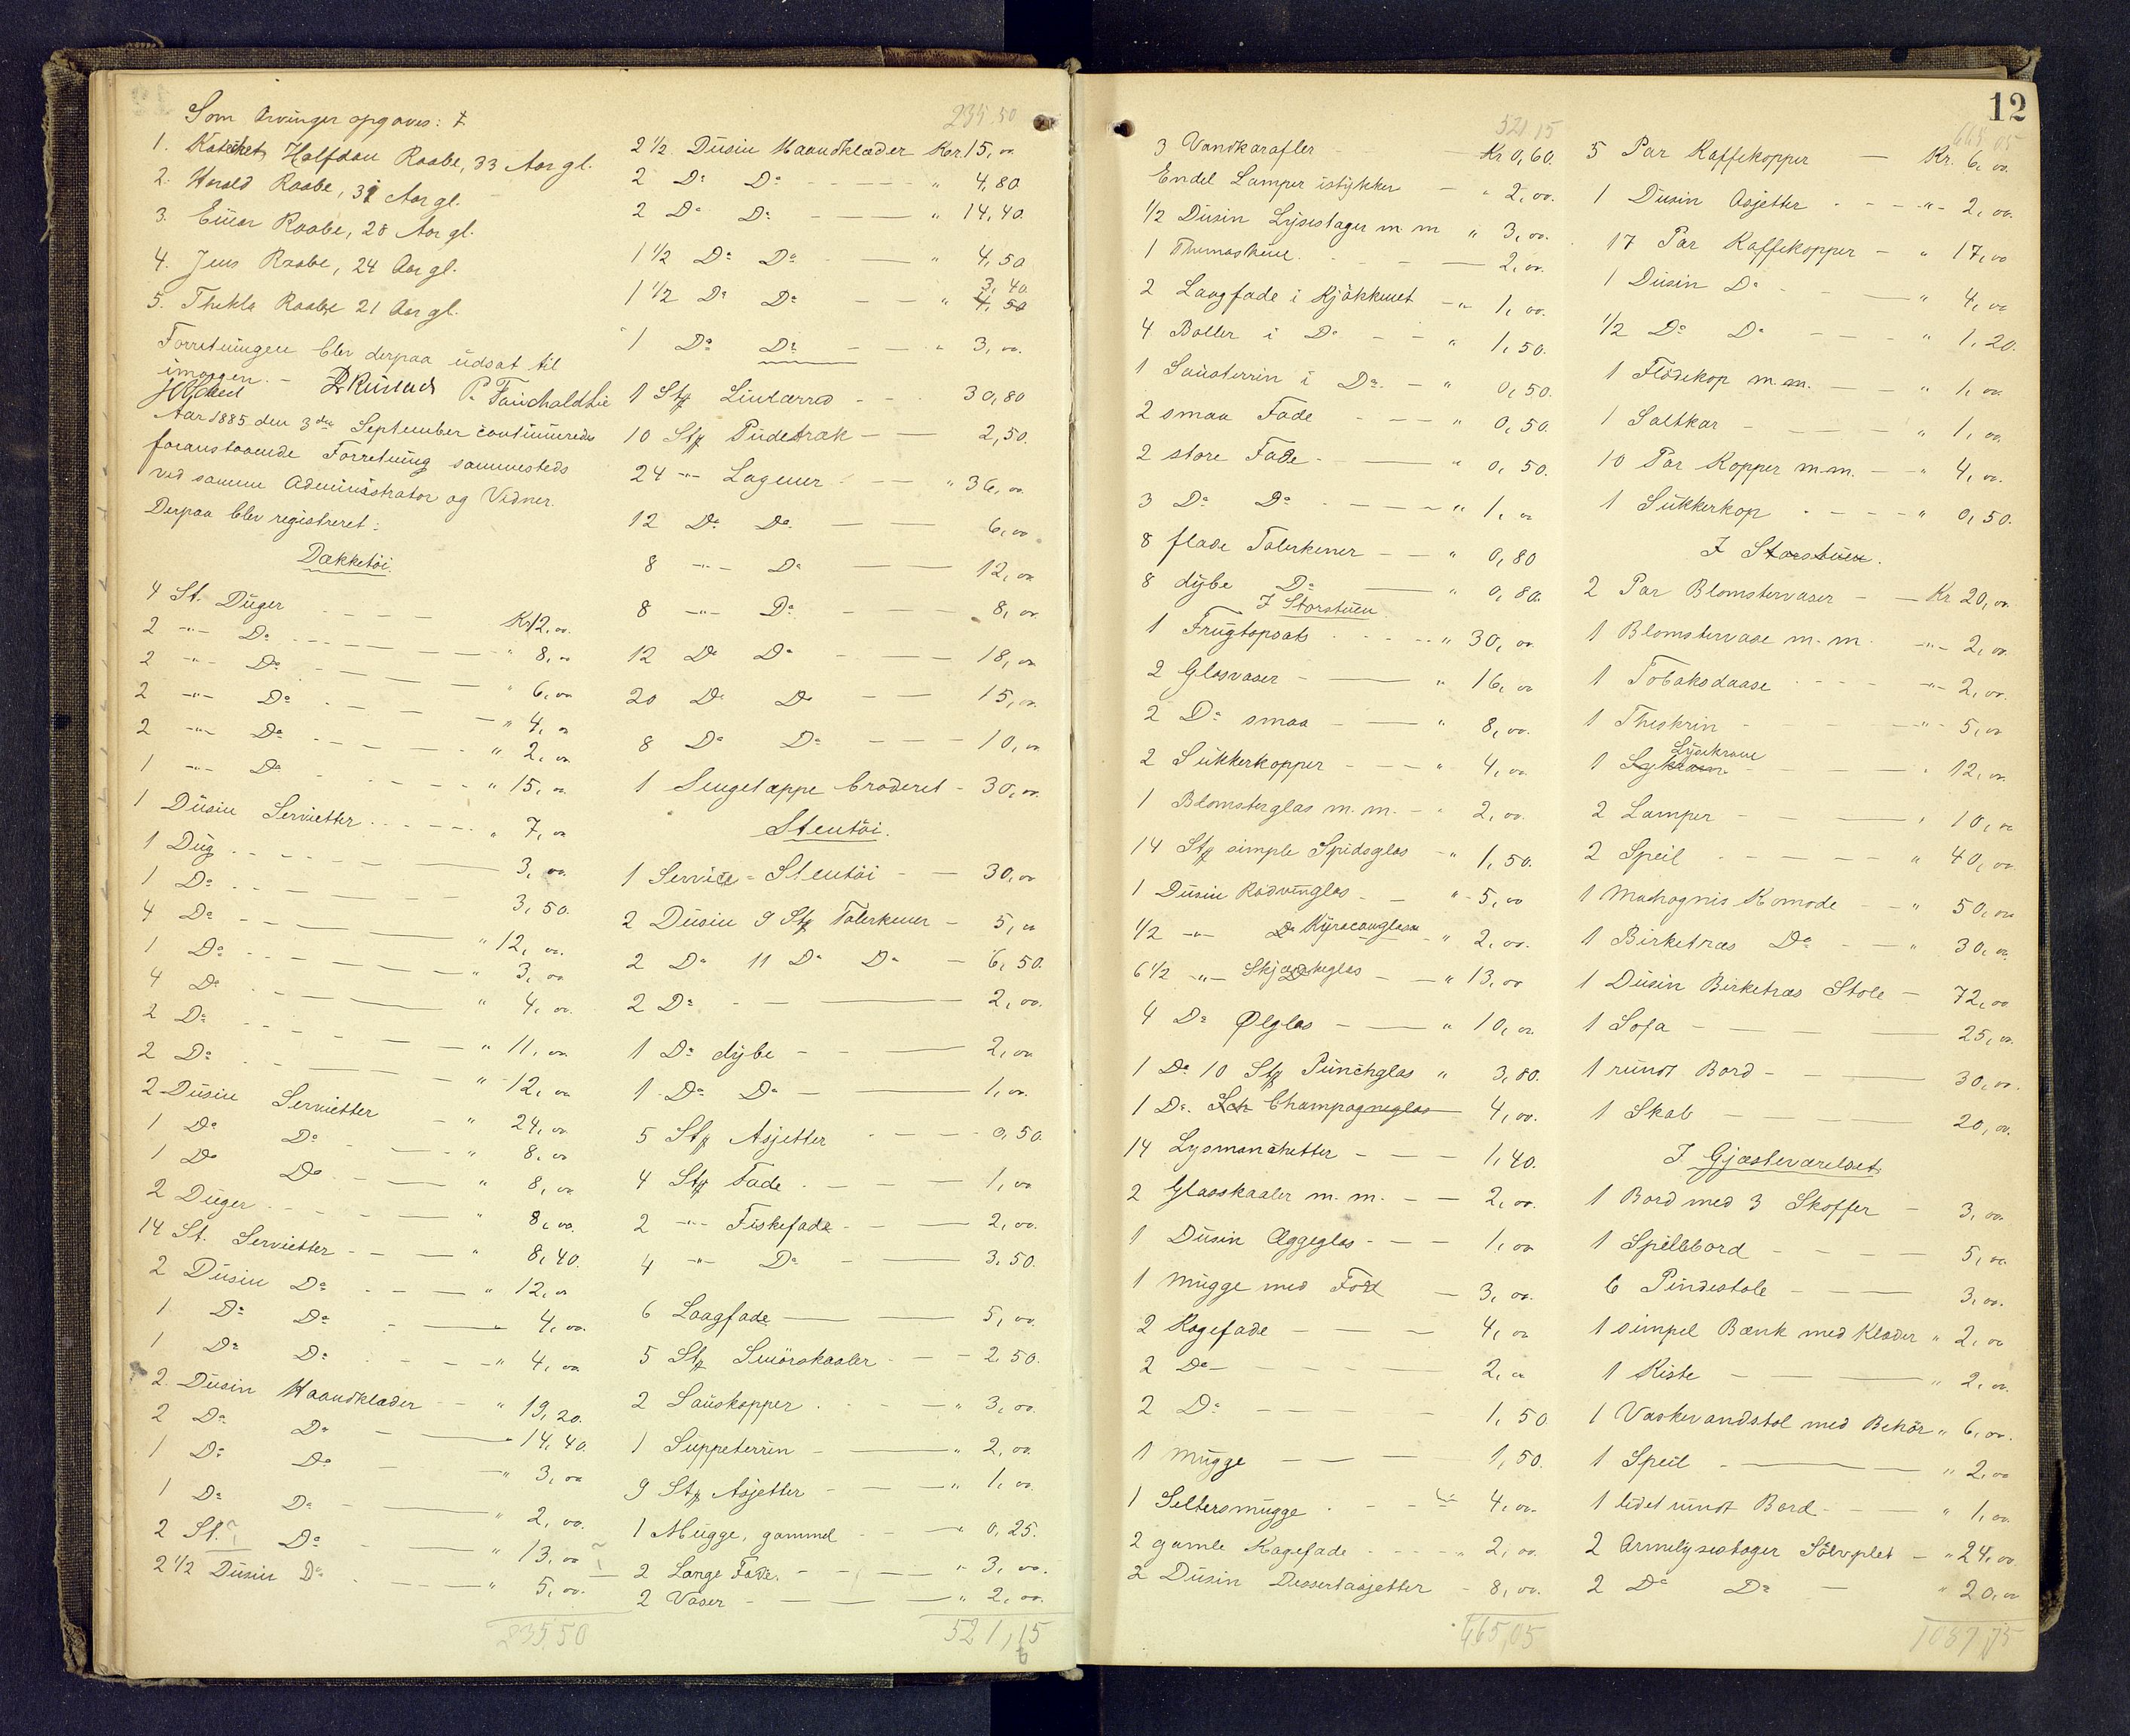 Som Arvinger opgaves:
1. Katechet Halfdan Raabe, 33 Aar gl.
2. Harald Raabe, 31 Aar gl.
3. Einar Raabe, 28 Aar gl.
4. Jens Raabe, 24 Aar gl.
5. Thekla Raabe 21 Aar gl.
Forretningen blev derpaa udsat til
imorgen. –
Aar 1885 den 3die September continueredes
foranstaaende Forretning sammesteds
ved samme Administrator og Vidner.
Derpaa blev registreret:
Dækketöi
4 St. Duger - - - Kr 12,00.
2 -"- Do - - - " 8,00
2 -"- Do - - - " 6,00
2 -"- Do - - - " 4,00
2 -"- Do - - - " 2,00
1 -"- Do - - - " 15,00
1 Dusin Servietter - - - " 7,00
1 Dug - - - 3,00.
1 Do - - - 3,50.
4 Do - - - " 12,00.
1 Do - - - " 3,00
4 Do - - - " 4,00.
2 Do - - - " 11,00
2 Do - - - " 12,00
2 Dusin Servietter - " 24,00
1 Do Do - - - " 8,00
1 Do Do - - - " 8,00
2 Duger - - - " 8,00.
14 St. Servietter - - - " 8,40.
2 Dusin Do - - - " 12,00
1 Do Do - - - " 4,00.
1 Do Do - - - " 4,00
2 Dusin Haandklæder - - " 19,20.
2 Do Do - - - " 14,40.
1 Do Do - - - " 3,00
1 Do Do - - - " 2,00.
2 St. Do - - - " 13,00
2 1/2 Dusin Do - - - " 5,00.
235,50
235.50
2 1/2 Dusin Haandklæder Kr 15,00
2 Do Do - - - " 4,80
2 Do Do - - - " 14,40
1 1/2 Do Do - - - " 4,50
3,40
1 1/2 Do Do - - - " 4,50
1 Do Do - - - " 3,00.
1 Stk Linlærred - - - 30,80
10 Stk Pudetræk - - - 2,50.
24 -"- Lagener - - - " 36,00
12 Do Do - - - 6,00
8 -"- Do - - - 12,00
8 -"- Do - - - 8,00
12 Do Do - - - 18,00
20 Do Do - - - 15,00
8 Do Do - - - 10,00
1 Sengetæppe broderet - 30,00.
Stentöi.
1 Service - Stentöi - - 30,00
2 Dusin 9 Stk Talerkener - 5,00
2 Do 11 Do Do - 6,50.
2 Do - - - 2,00.
1 Do dybe - - - 2,00
1 Do Do - - - 1,00.
5 Stk Asjetter - - - 0,50.
4 Stk Fade - - - 1,00
2 -"- Fiskefade - - - 2,00.
4 -"- Do - - - 3,50.
6 Laagfade - - - 5,00.
5 Stk Smörskaaler - - - 2,50.
2 Sauskopper - - - " 3,00.
1 Suppeterrin - - - " 2,00.
9 Stk Asjetter - - - " 1,00.
1 Mugge, gammel - - - " 0,25.
2 Lange Fade. - - - " 3,00.
2 Vaser - - - " 2,00.
521,15
12
521.15
3 Vandkarafler - - - Kr 0,60.
Endel Lamper istykker - " 2,00.
1/2 Dusin Lysestager m.m " 3,00.
1 - - - 2,00.
2 Laagfade i Kjökkenet - " 1,00.
4 Boller i Do - - " 1,50.
1 Sausterrin i Do. - " 0,50.
2 smaa Fade - - - " 0,50.
2 store Fade - - - " 0,50.
3 Do Do - - - " 1,00
8 flade Talerkener - - " 0,80
8 dybe Do - - - " 0,80.
I Storstuen
1 Frugtopsats - - - " 30,00
2 Glasvaser - - - " 16,00
2 Do smaa - - - " 8,00.
2 Sukkerkopper - - - " 4,00
1 Blomsterglas m.m. - " 2,00.
14 Stk simple Spidsglas - " 1,50.
1 Dusin Rødvinglas - - " 5,00
1/2 -"- Kyracauglas " 2,00.
6 1/2 -"- Skjænkeglas - - " 13,00
4 Do Ølglas - - - " 10,00
1 Do 10 Stk Punchglas " 3,80.
1 Do. Champagneglas 4,00.
14 Lysmanchetter - - - 1,40.
2 Glasskaaler m.m. - - 2,00.
1 Dusin Æggeglas - - - 1,00
1 Mugge med Fad - 3,00.
2 Kagefade - - - 4,00
2 Do - - - 2,00
2 Do - - - 1,50
1 Mugge - - - 1,50.
1 Seltersmugge - - - 4,00.
2 gamle Kagefade - - - " 2,00.
2 Dusin Dessertasjetter - 8,00.
665,05
665,05
5 Par Kaffekopper - Kr. 6,00.
1 Dusin Asjetter - - - " - 2,00.
17 Par Kaffekopper - " 17,00
1 Dusin Do - - - " 4,00
1/2 Do Do - - - " 1,20.
1 Flödekop m.m. - - " 1,00
1 Saltkar - - - " 1,00
10 Par Kopper m.m. - - " 4,00.
1 Sukkerkop - - - " 0,50.
I Storstuen.
2 Par Blomstervaser - - Kr 20,00
1 Blomstervase m.m. - " - 2,00.
1 Tobaksdaase - - - " - 2,00.
1 Theskrin - - - " - 5,00
Lysekrone
1 - - - " 12,00
2 Lamper - - - " 10,00
2 Speil - - - " 40,00
1 Mahognis Komode - - " 50,00
1 Birketræs Do - - " 30,00
1 Dusin Birketræs Stole - 72,00
1 Sofa - - - 25,00
1 rundt Bord - - - 30,00.
1 Skab - - - 20,00.
I Gjæsteværelset.
1 Bord med 3 Skuffer - 3,00.
1 Spillebord - - - 5,00
6 Pindestole - - - 3,00.
1 simpel Bænk med Klæder " 2,00
1 Kiste - - - " 2,00.
1 Vaskevandstol med Behör " 6,00.
1 Speil - - - " 2,00
1 lidet rundt Bord - - " 1,00
2 Armelysestager Sölvplet - " 24,00
2 Do Do - " 20,00
1087,75